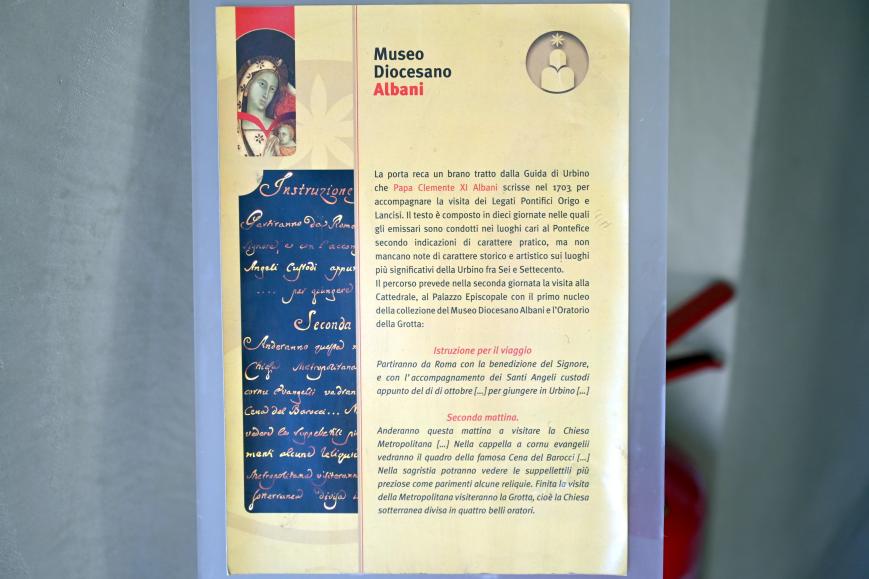 Museo
Diocesano
Albani
Instruzione
Partiranno da Roma
Signore, e con l'accom
Angeli Custodi appun
.... per giungere
Seconda
Anderanno questa m
Chiesa Metropolitana
cornu evangelii vedran
Cena del Barocci...
vedere le suppellettili più
menti alcune reliquie
Metropolitana visiteranno
sotterranea divisa
La porta reca un brano tratto dalla Guida di Urbino
che Papa Clemente XI Albani scrisse nel 1703 per
accompagnare la visita dei Legati Pontifici Origo e
Lancisi. Il testo è composto in dieci giornate nelle quali
gli emissari sono condotti nei luoghi cari al Pontefice
secondo indicazioni di carattere pratico, ma non
mancano note di carattere storico e artistico sui luoghi
più significativi della Urbino fra Sei e Settecento.
Il percorso prevede nella seconda giornata la visita alla
Cattedrale, al Palazzo Episcopale con il primo nucleo
della collezione del Museo Diocesano Albani e l'Oratorio
della Grotta:
Istruzione per il viaggio
Partiranno da Roma con la benedizione del Signore,
e con l'accompagnamento dei Santi Angeli custodi
appunto del di di ottobre [...] per giungere in Urbino [...]
Seconda mattina.
Anderanno questa mattina a visitare la Chiesa
Metropolitana [...] Nella cappella a cornu evangelii
vedranno il quadro della famosa Cena del Barocci [...]
Nella sagristia potranno vedere le suppellettili più
preziose come parimenti alcune reliquie. Finita la visita
della Metropolitana visiteranno la Grotta, cioè la Chiesa
sotterranea divisa in quattro belli oratori.